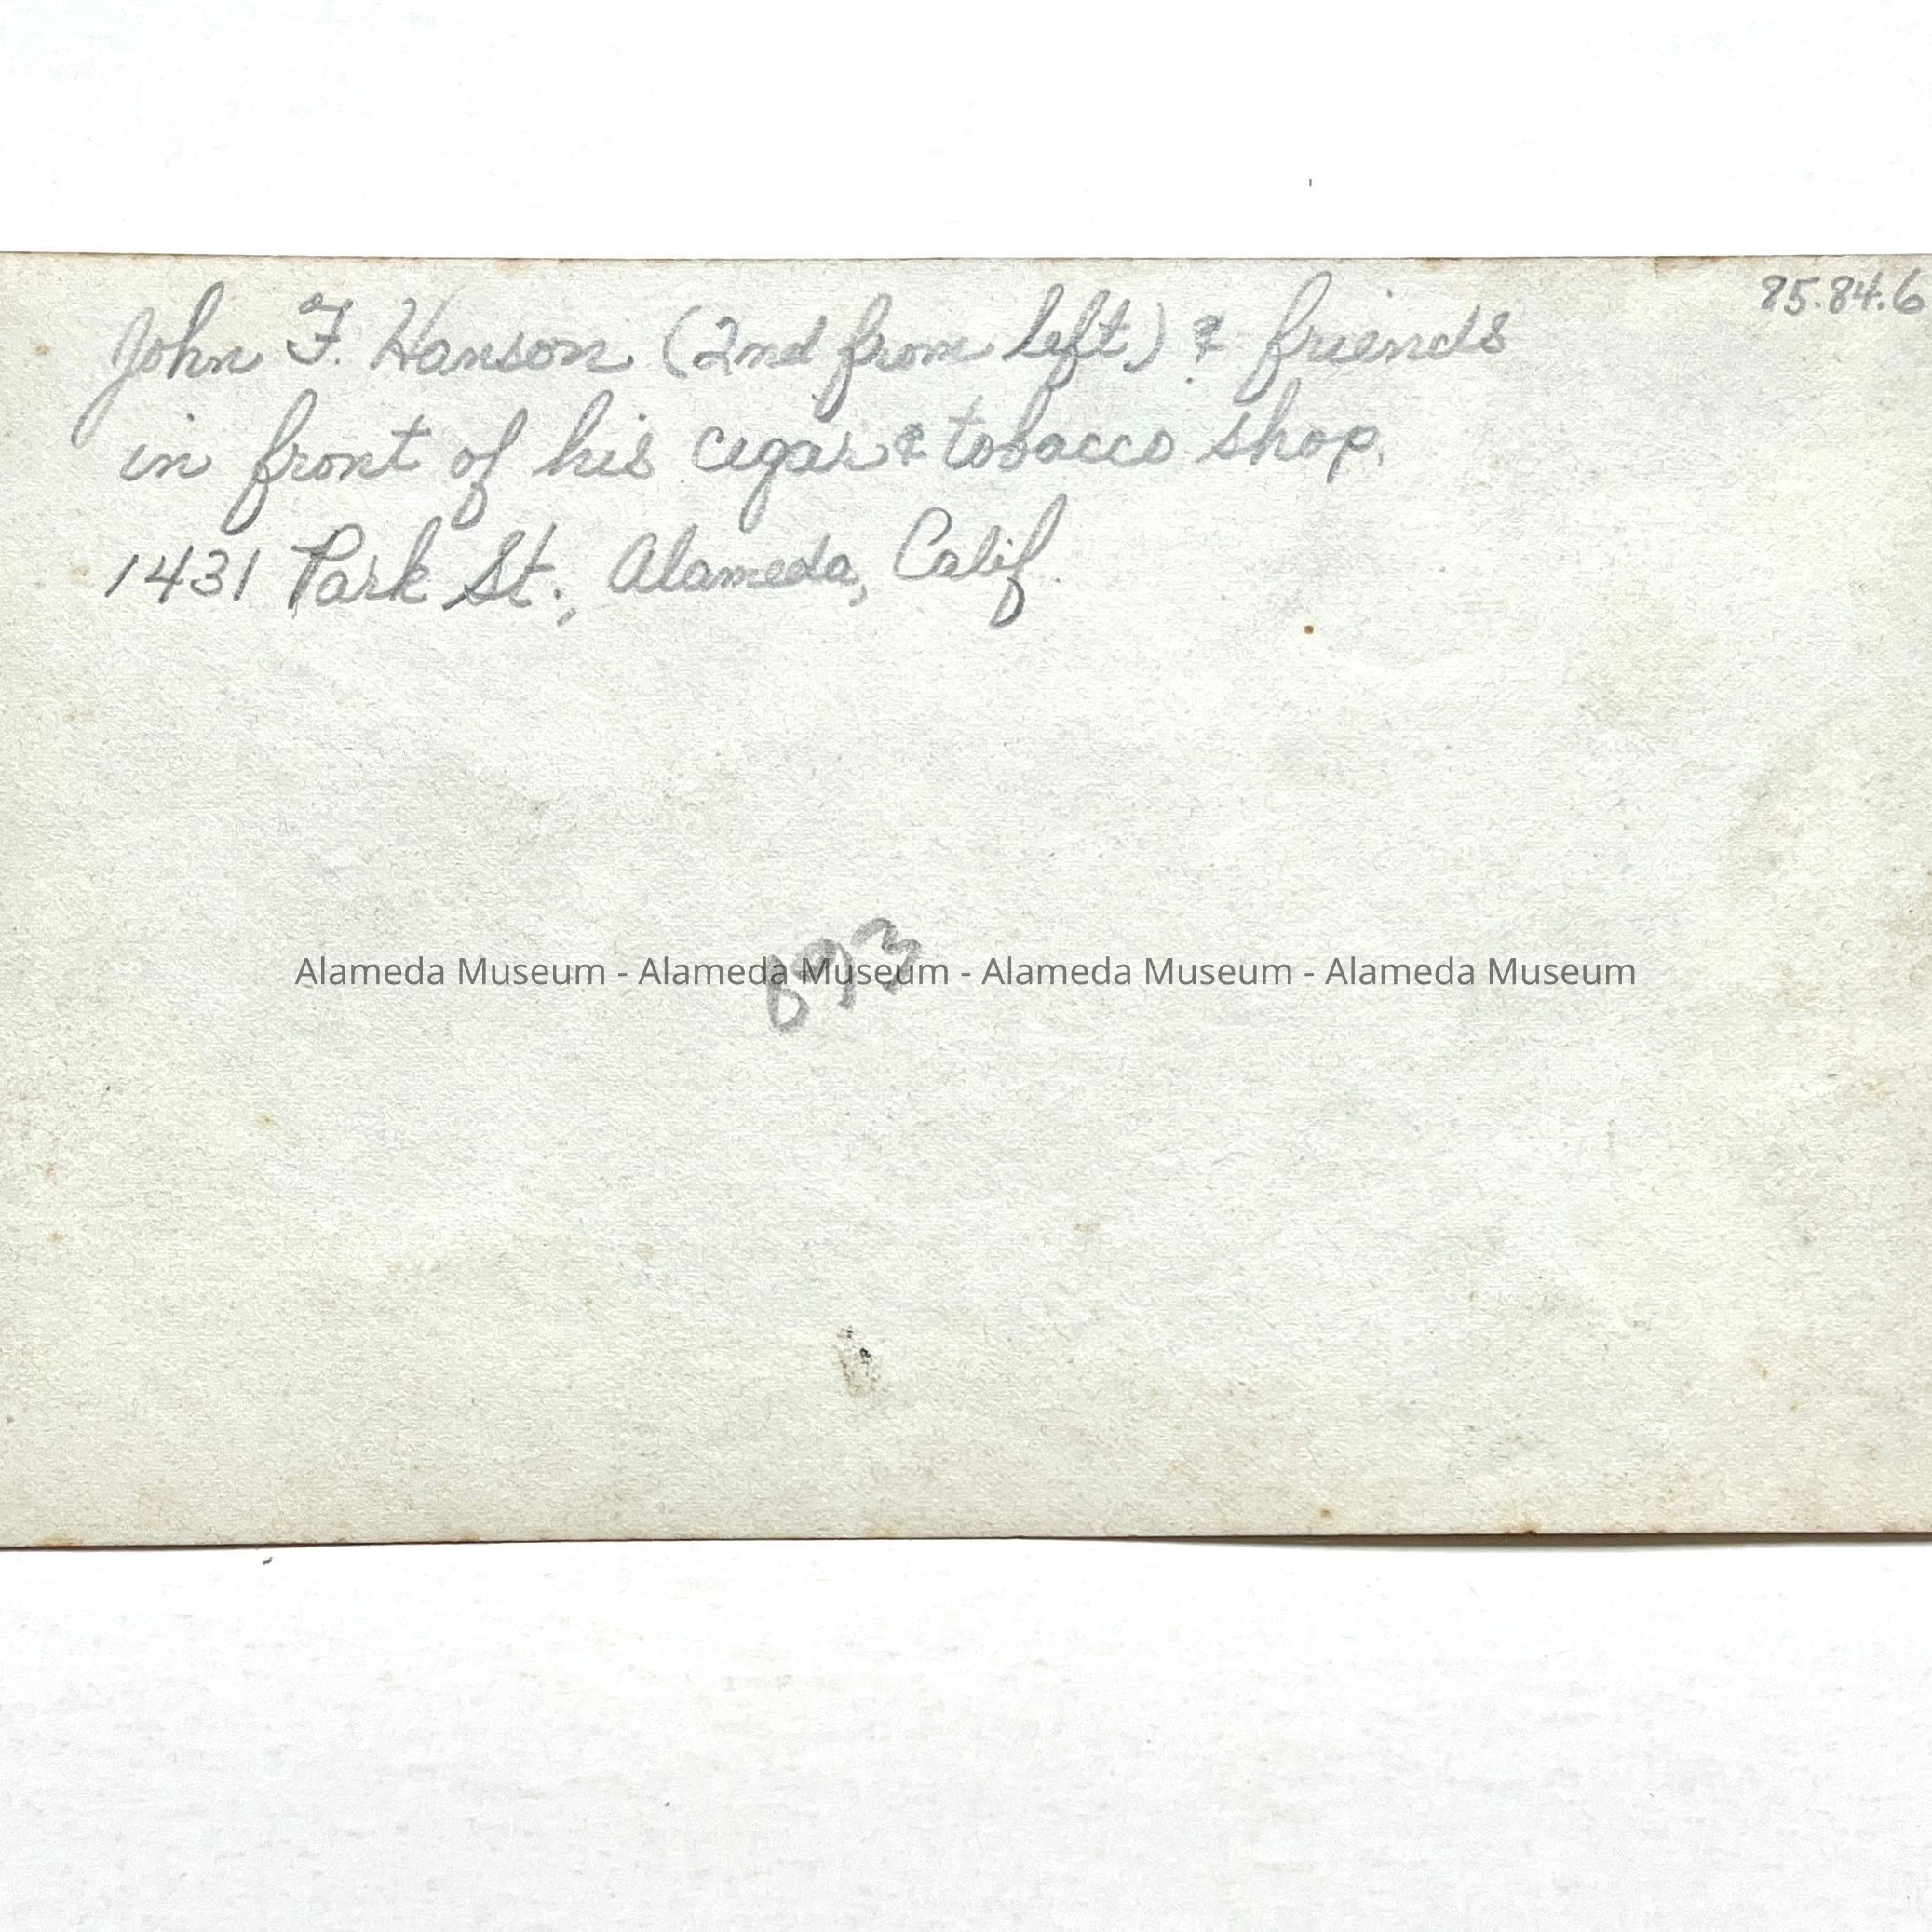 85.84.6
John F. Hanson (2nd from left) & friends
in front of his cigar & tobacco shop.
1431 Park St., Alameda, Calif.
Alameda Museum - Alameda Museum - Alameda Museum - Alameda Museum
893